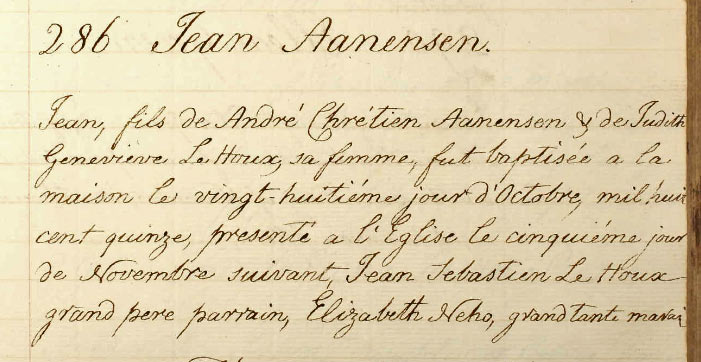 286 Jean Aanensen.
Jean, fils de André Chrétien Aanensen & de Judith
Geneviève Le Houx, sa femme, fut baptisée a la
maison le vingt-huitiéme jour d'Octobre, mil huit
cent quinze, presenté a l'Eglise le cinquiéme jour
de Novembre suivant, Jean Sebastien Le Houx
grand pere parrain, Elizabeth Neho, grand tante